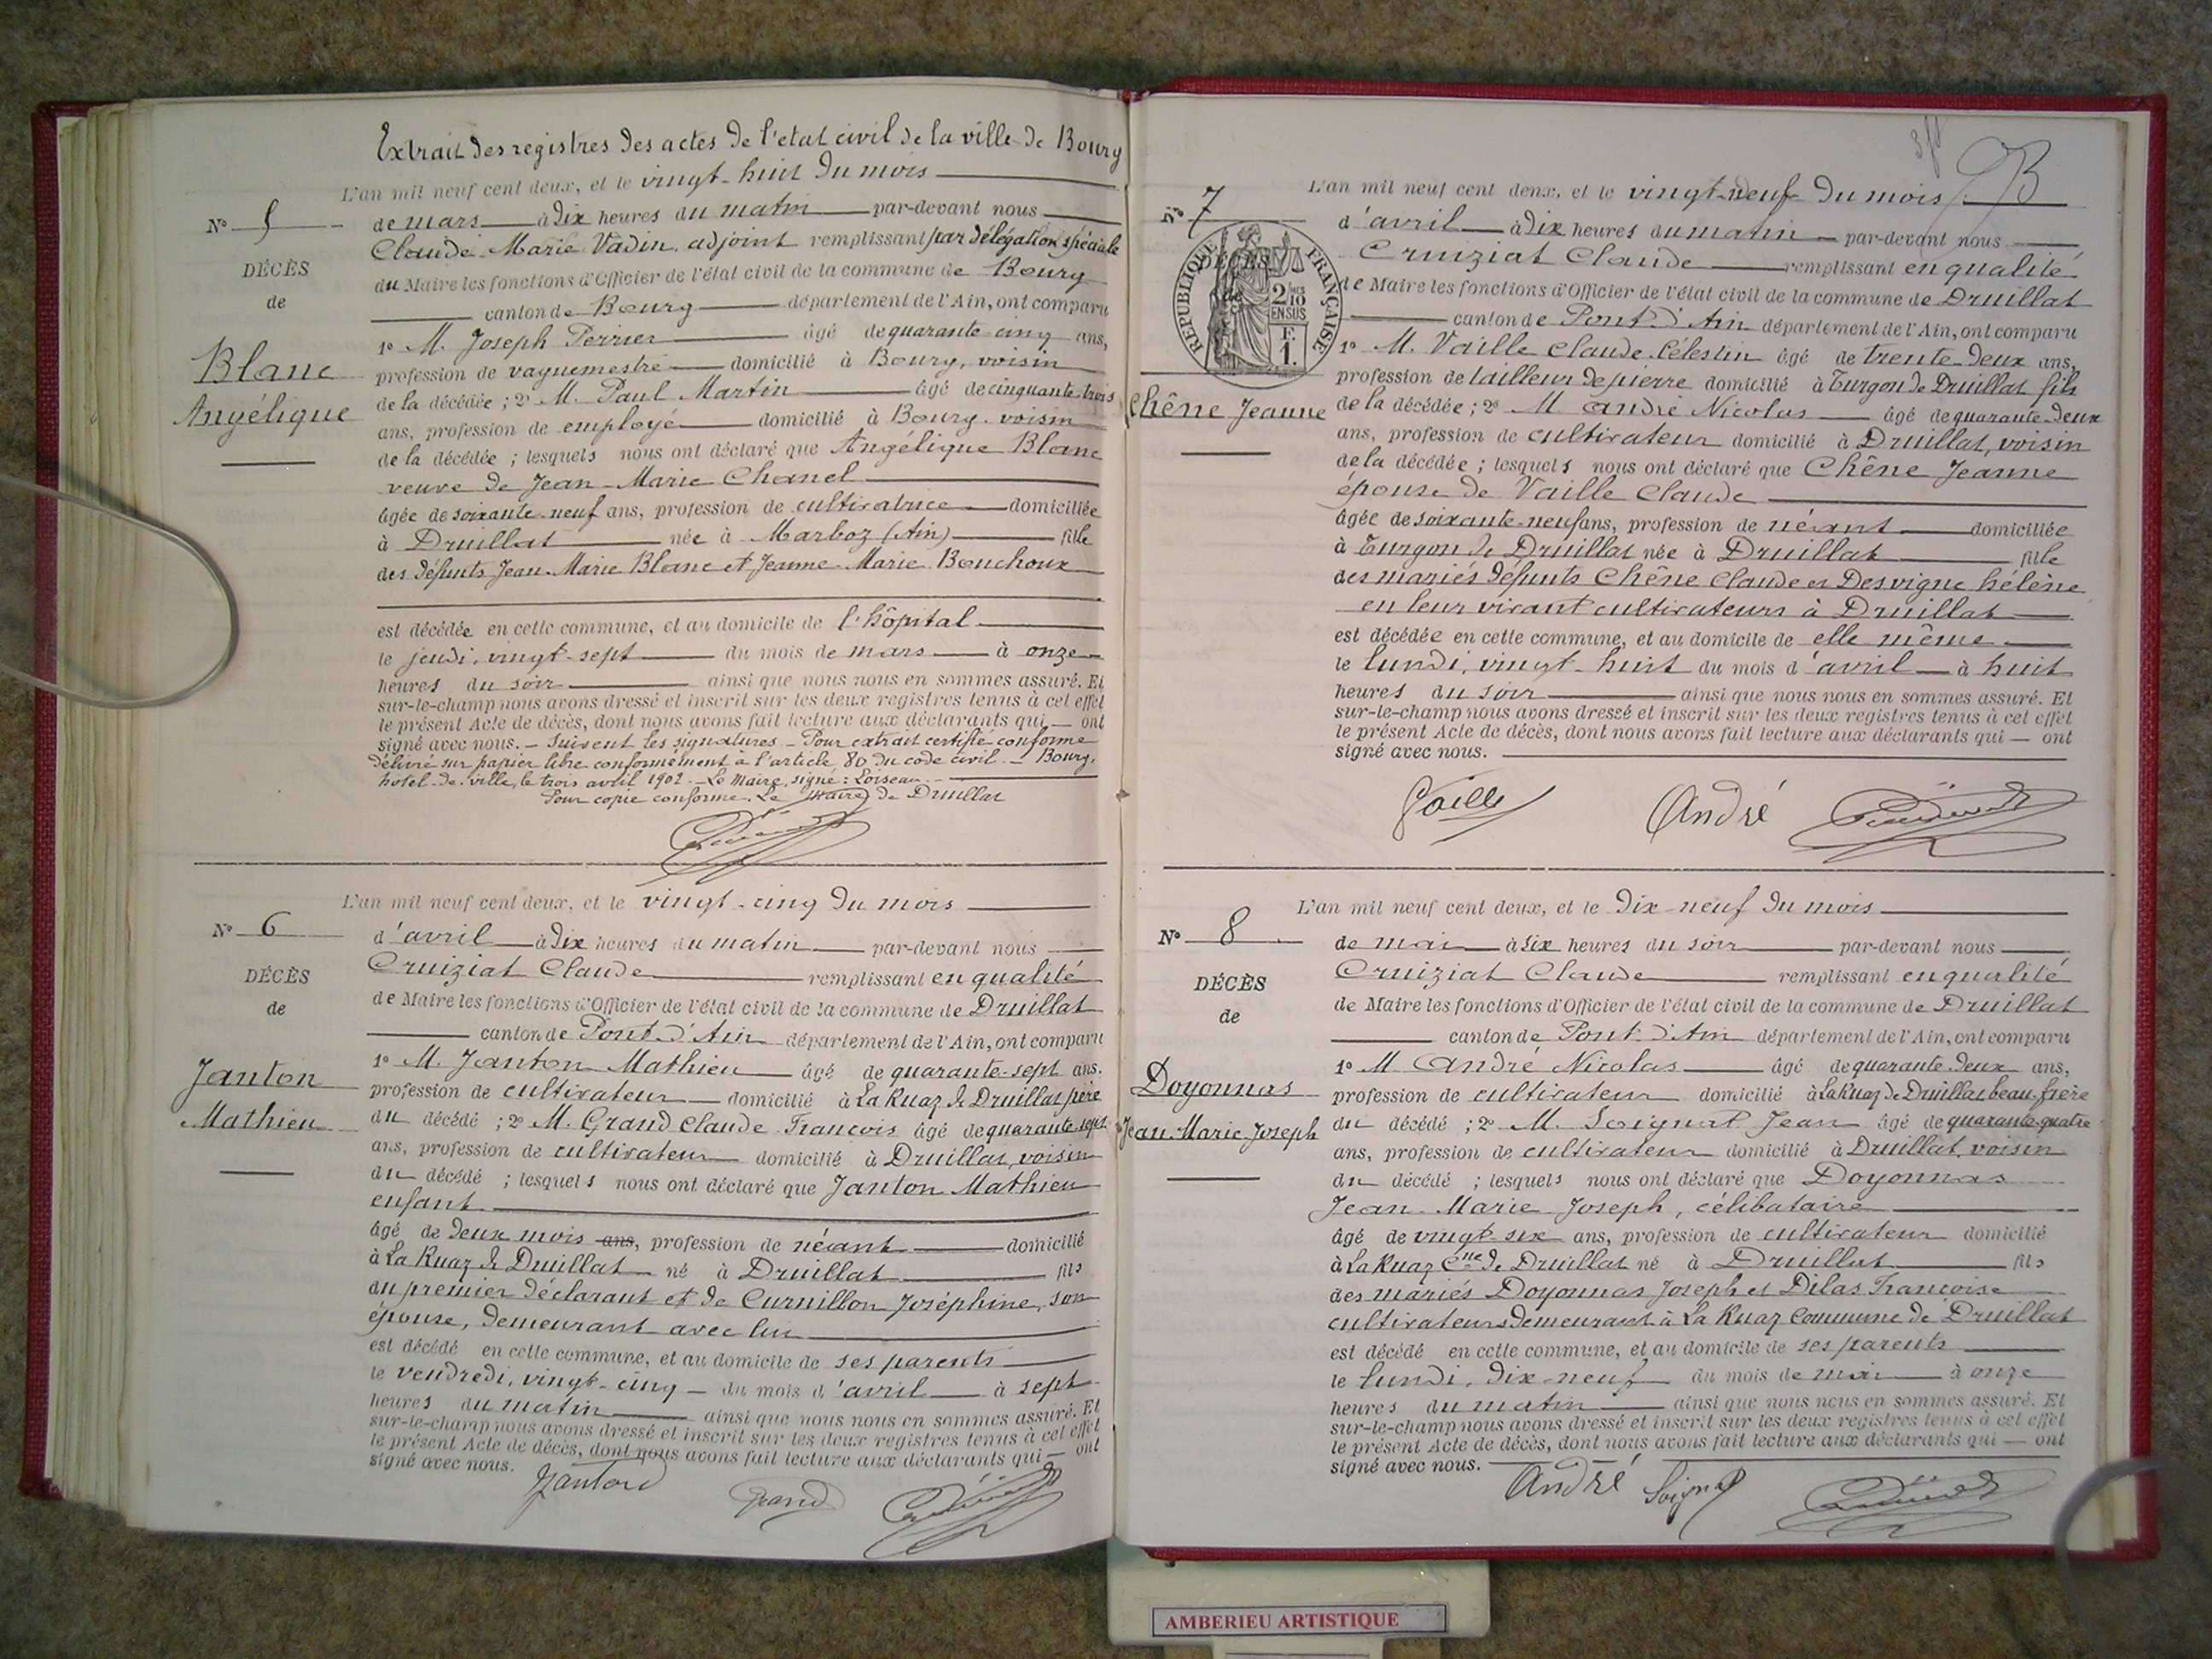 Extrait des registres des actes de l'etat civil de la ville de Bourg
L'an mil neuf cent deux, et le vingt-huit du mois
N° 5
de mars à dix heures du matin par-devant nous
Claude-Marie Vadin, adjoint remplissant par délégation spéciale
DÉCÈS
du Maire les fonctions d'Officier de l'état civil de la commune de Bourg
de
canton de Bourg département de l'Ain, ont comparu
1° M. Joseph Perrier âgé de quarante cinq ans,
Blanc
profession de vaguemestre domicilié à Bourg, voisin
de la décédée ; 2° M. Paul Martin âgé de cinquante trois
Angélique
ans, profession de employé domicilié à Bourg, voisin
de la décédée ; lesquels nous ont déclaré que Angélique Blanc
veuve de Jean-Marie Chanel
âgée de soixante-neuf ans, profession de cultivatrice domiciliée
à Druillat née à Marboz (Ain) fille
des défunts Jean-Marie Blanc et Jeanne-Marie Bouchoux
est décédée en cette commune, et au domicile de l'hôpital
le jeudi, vingt-sept du mois de mars à onze
heures du soir ainsi que nous nous en sommes assuré. Et
sur-le-champ nous avons dressé et inscrit sur les deux registres tenus à cet effet
le présent Acte de décès, dont nous avons fait lecture aux déclarants qui ont
signé avec nous. - Suivent les signatures - Pour extrait certifié conforme
délivré sur papier libre conformément à l'article 80 du code civil. - Bourg,
hotel-de-ville, le trois avril 1902. - Le Maire, signé : Loiseau. -
Pour copie conforme. Le Maire de Druillat
L'an mil neuf cent deux, et le vingt-cinq du mois
N° 6
d'avril à dix heures du matin par-devant nous
Cruiziat Claude remplissant en qualité
DÉCÈS
de Maire les fonctions d'Officier de l'état civil de la commune de Druillat
de
canton de Pont d'Ain département de l'Ain, ont comparu
1° M. Janton Mathieu âgé de quarante-sept ans,
Janton
profession de cultivateur domicilié à La Ruaz de Druillat, père
Mathieu
du décédé ; 2° M. Grand Claude François âgé de quarante sept
ans, profession de cultivateur domicilié à Druillat, voisin
du décédé ; lesquels nous ont déclaré que Janton Mathieu
enfant
âgé de deux mois ans, profession de néant domicilié
à La Ruaz de Druillat né à Druillat fils
du premier déclarant et de Curnillon Joséphine, son
épouse, demeurant avec lui
est décédé en cette commune, et au domicile de ses parents
le vendredi, vingt-cinq du mois d'avril à sept
heures du matin ainsi que nous nous en sommes assuré. Et
sur-le-champ nous avons dressé et inscrit sur les deux registres tenus à cet effet
le présent Acte de décès, dont nous avons fait lecture aux déclarants qui ont
signé avec nous.
Janton Grand
L'an mil neuf cent deux, et le vingt-neuf du mois
N° 7
d'avril à dix heures du matin par-devant nous
Cruiziat Claude remplissant en qualité
DÉCÈS
de
RÉPUBLIQUE FRANÇAISE
2/10 EN SUS
F. 1.
de Maire les fonctions d'Officier de l'état civil de la commune de Druillat
canton de Pont d'Ain département de l'Ain, ont comparu
1° M. Vaille Claude Célestin âgé de trente-deux ans,
profession de tailleur de pierre domicilié à Turgon de Druillat, fils
Chêne Jeanne
de la décédée ; 2° M. André Nicolas âgé de quarante-deux
ans, profession de cultivateur domicilié à Druillat, voisin
de la décédée ; lesquels nous ont déclaré que Chêne Jeanne
épouse de Vaille Claude
âgée de soixante-neuf ans, profession de néant domiciliée
à Turgon de Druillat née à Druillat fille
des mariés défunts Chêne Claude et Desvigne hélène
en leur vivant cultivateurs à Druillat
est décédée en cette commune, et au domicile de elle même
le lundi, vingt-huit du mois d'avril à huit
heures du soir ainsi que nous nous en sommes assuré. Et
sur-le-champ nous avons dressé et inscrit sur les deux registres tenus à cet effet
le présent Acte de décès, dont nous avons fait lecture aux déclarants qui ont
signé avec nous.
Vaille André
L'an mil neuf cent deux, et le dix-neuf du mois
N° 8
de mai à six heures du soir par-devant nous
Cruiziat Claude remplissant en qualité
DÉCÈS
de Maire les fonctions d'Officier de l'état civil de la commune de Druillat
de
canton de Pont d'Ain département de l'Ain, ont comparu
1° M. André Nicolas âgé de quarante-deux ans,
Doyonnas
profession de cultivateur domicilié à La Ruaz de Druillat, beau-frère
Jean-Marie-Joseph
du décédé ; 2° M. Soignat Jean âgé de quarante-quatre
ans, profession de cultivateur domicilié à Druillat, voisin
du décédé ; lesquels nous ont déclaré que Doyonnas
Jean-Marie-Joseph, célibataire
âgé de vingt-six ans, profession de cultivateur domicilié
à La Ruaz Cne de Druillat né à Druillat fils
des mariés Doyonnas Joseph et Dilas Françoise
cultivateurs demeurant à La Ruaz Commune de Druillat
est décédé en cette commune, et au domicile de ses parents
le lundi, dix-neuf du mois de mai à onze
heures du matin ainsi que nous nous en sommes assuré. Et
sur-le-champ nous avons dressé et inscrit sur les deux registres tenus à cet effet
le présent Acte de décès, dont nous avons fait lecture aux déclarants qui ont
signé avec nous.
André Soignat
AMBERIEU ARTISTIQUE